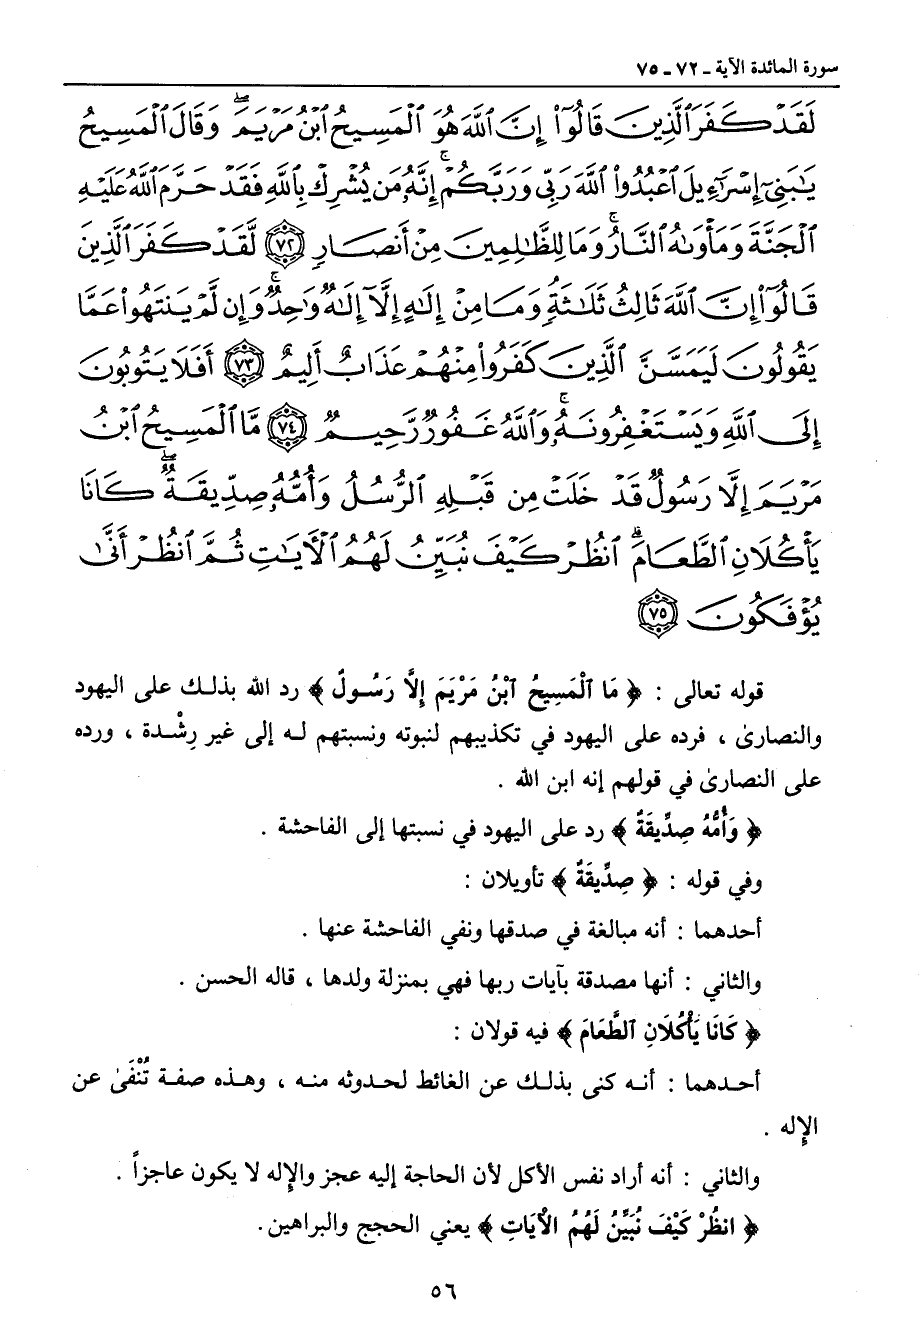 سورة المائدة الآية ـ ٧٢ ـ ٧٥
لَقَدْ كَفَرَ ٱلَّذِينَ قَالُوٓا۟ إِنَّ ٱللَّهَ هُوَ ٱلْمَسِيحُ ٱبْنُ مَرْيَمَ ۖ وَقَالَ ٱلْمَسِيحُ
يَٰبَنِىٓ إِسْرَٰٓءِيلَ ٱعْبُدُوا۟ ٱللَّهَ رَبِّى وَرَبَّكُمْ ۚ إِنَّهُۥ مَن يُشْرِكْ بِٱللَّهِ فَقَدْ حَرَّمَ ٱللَّهُ عَلَيْهِ
ٱلْجَنَّةَ وَمَأْوَىٰهُ ٱلنَّارُ ۚ وَمَا لِلظَّٰلِمِينَ مِنْ أَنصَارٍ ٧٢ لَّقَدْ كَفَرَ ٱلَّذِينَ
قَالُوٓا۟ إِنَّ ٱللَّهَ ثَالِثُ ثَلَٰثَةٍ ۘ وَمَا مِنْ إِلَٰهٍ إِلَّآ إِلَٰهٌ وَٰحِدٌ ۚ وَإِن لَّمْ يَنتَهُوا۟ عَمَّا
يَقُولُونَ لَيَمَسَّنَّ ٱلَّذِينَ كَفَرُوا۟ مِنْهُمْ عَذَابٌ أَلِيمٌ ٧٣ أَفَلَا يَتُوبُونَ
إِلَى ٱللَّهِ وَيَسْتَغْفِرُونَهُۥ ۚ وَٱللَّهُ غَفُورٌ رَّحِيمٌ ٧٤ مَّا ٱلْمَسِيحُ ٱبْنُ
مَرْيَمَ إِلَّا رَسُولٌ قَدْ خَلَتْ مِن قَبْلِهِ ٱلرُّسُلُ وَأُمُّهُۥ صِدِّيقَةٌ ۖ كَانَا
يَأْكُلَانِ ٱلطَّعَامَ ۗ ٱنظُرْ كَيْفَ نُبَيِّنُ لَهُمُ ٱلْءَايَٰتِ ثُمَّ ٱنظُرْ أَنَّىٰ
يُؤْفَكُونَ ٧٥
قوله تعالى : ﴿ مَا ٱلْمَسِيحُ ٱبْنُ مَرْيَمَ إِلَّا رَسُولٌ ﴾ رد الله بذلك على اليهود
والنصارىٰ ، فرده على اليهود في تكذيبهم لنبوته ونسبتهم له إلى غير رِشْدة ، ورده
على النصارىٰ في قولهم إنه ابن الله .
﴿ وَأُمُّهُ صِدِّيقَةٌ ﴾ رد على اليهود في نسبتها إلى الفاحشة .
وفي قوله : ﴿ صِدِّيقَةٌ ﴾ تأويلان :
أحدهما : أنه مبالغة في صدقها ونفي الفاحشة عنها .
والثاني : أنها مصدقة بآيات ربها فهي بمنزلة ولدها ، قاله الحسن .
﴿ كَانَا يَأْكُلَانِ ٱلطَّعَامَ ﴾ فيه قولان :
أحدهما : أنه كنى بذلك عن الغائط لحدوثه منه ، وهذه صفة تُنْفَىٰ عن
الإِله .
والثاني : أنه أراد نفس الأكل لأن الحاجة إليه عجز والإِله لا يكون عاجزاً .
﴿ انظُرْ كَيْفَ نُبَيِّنُ لَهُمُ الْآيَاتِ ﴾ يعني الحجج والبراهين.
٥٦